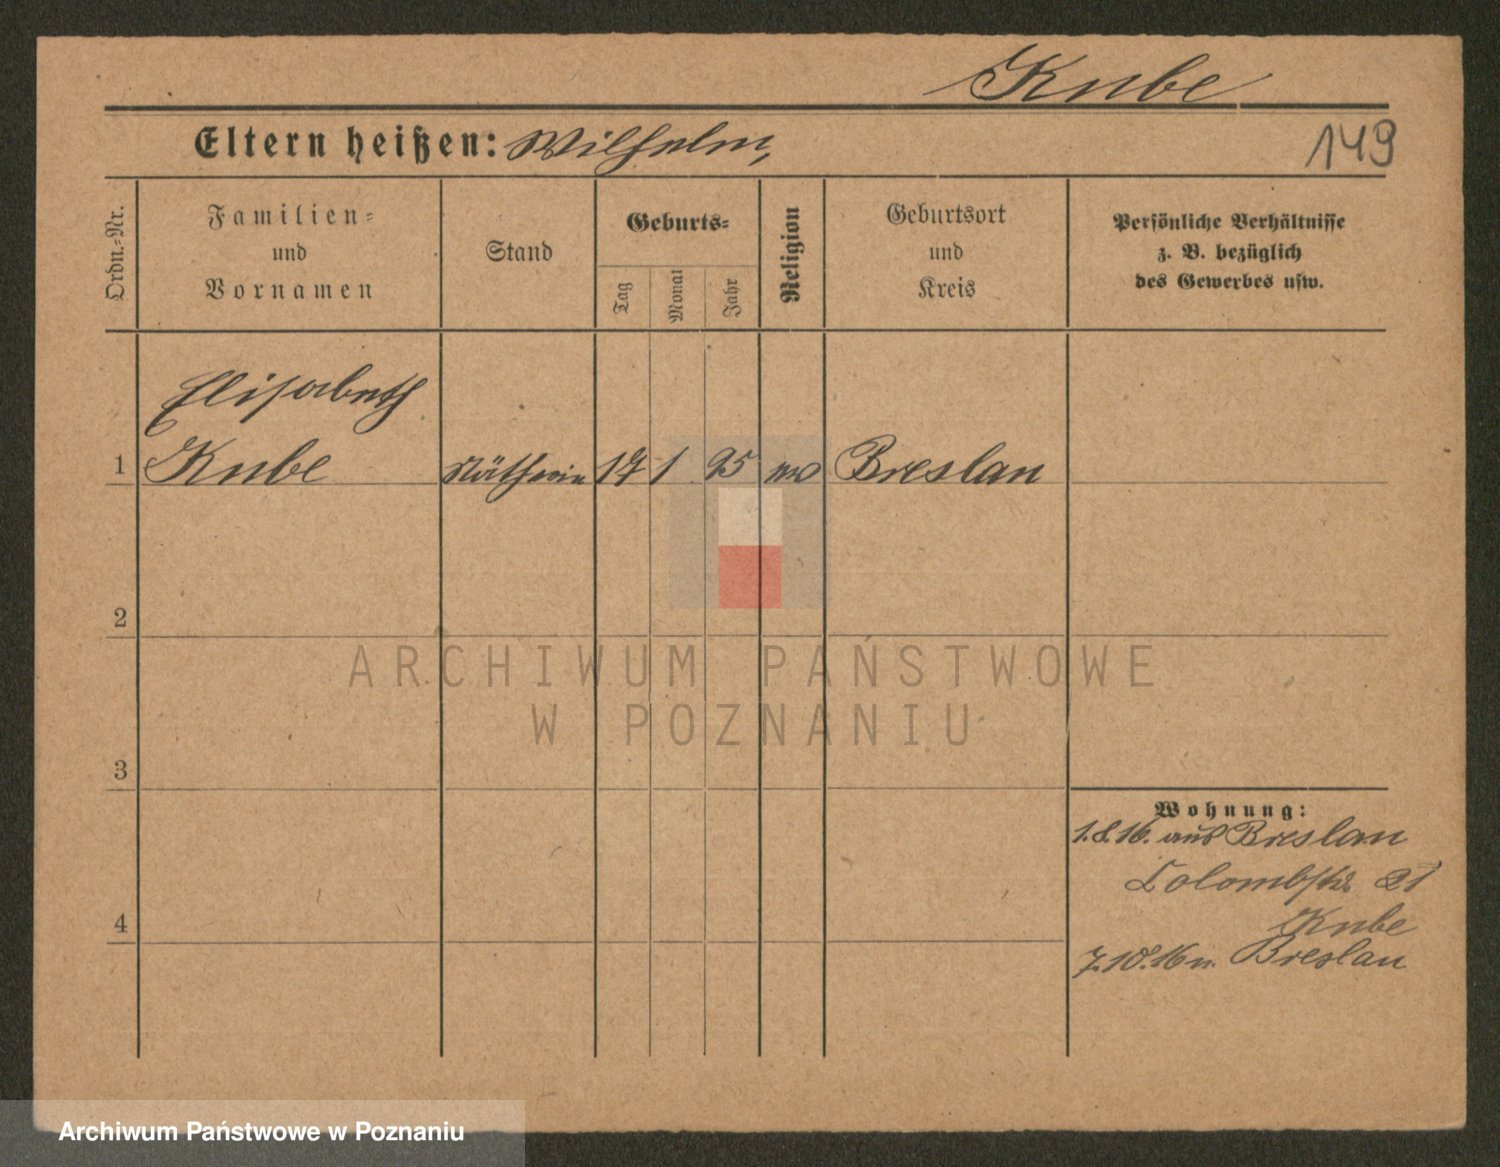 Kube
Eltern heißen: Wilhelm,
149
Ordn.=Nr.
Familien=
und
Vornamen
Stand
Geburts=
Tag
Monat
Jahr
Religion
Geburtsort
und
Kreis
Persönliche Verhältnisse
z. B. bezüglich
des Gewerbes usw.
Elisabeth
1 Kube Näherin 17 1 95 Breslau
2
ARCHIWUM PAŃSTWOWE
W POZNANIU
3
Wohnung:
1.8.16. aus Breslau
21
4
Kube
7.10.16 n. Breslau
Archiwum Państwowe w Poznaniu